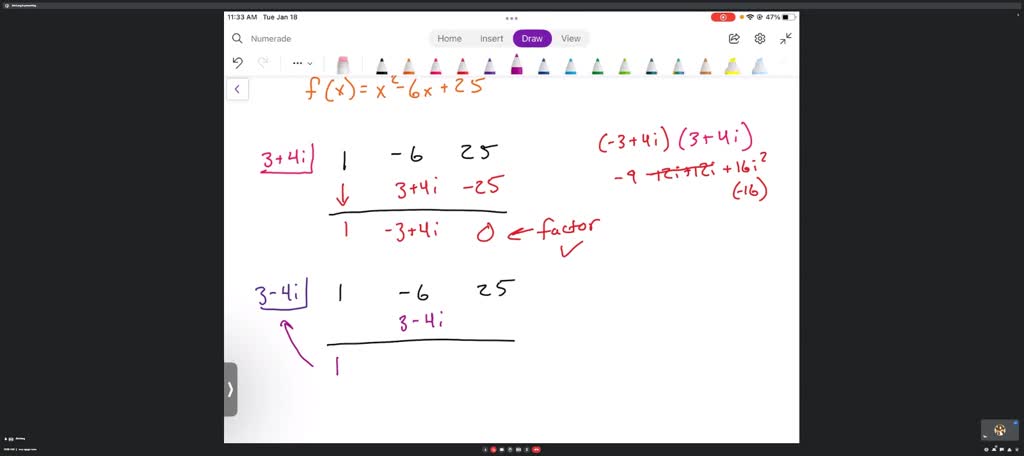 11:33 AM Tue Jan 18
47%
Numerade
Home Insert Draw View
f(x) = x² - 6x + 25
3+4i 1 -6 25
3+4i -25
1 -3+4i 0 ← factor ✓
(-3+4i)(3+4i)
-9 -12i+12i +16i²
(-16)
3-4i 1 -6 25
3-4i
1